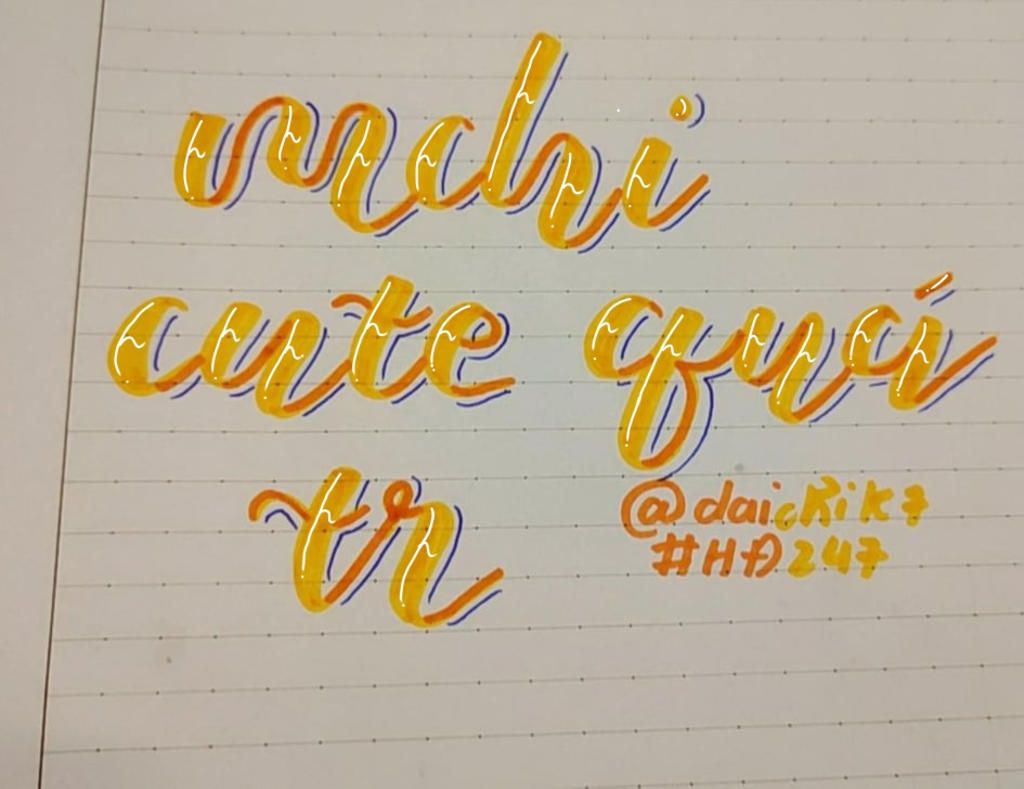 mchi
cute quá
tr
@daicRik7
#HĐ247